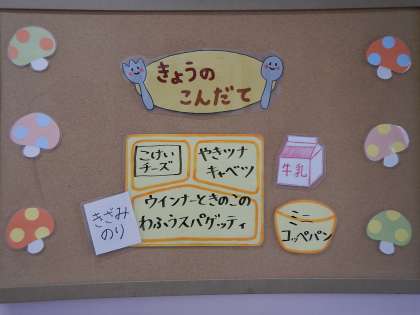 きょうの
こんだて
こけい
チーズ
やきツナ
キャベツ
牛乳
ウインナーときのこの
わふうスパゲッティ
きざみ
のり
ミニ
コッペパン